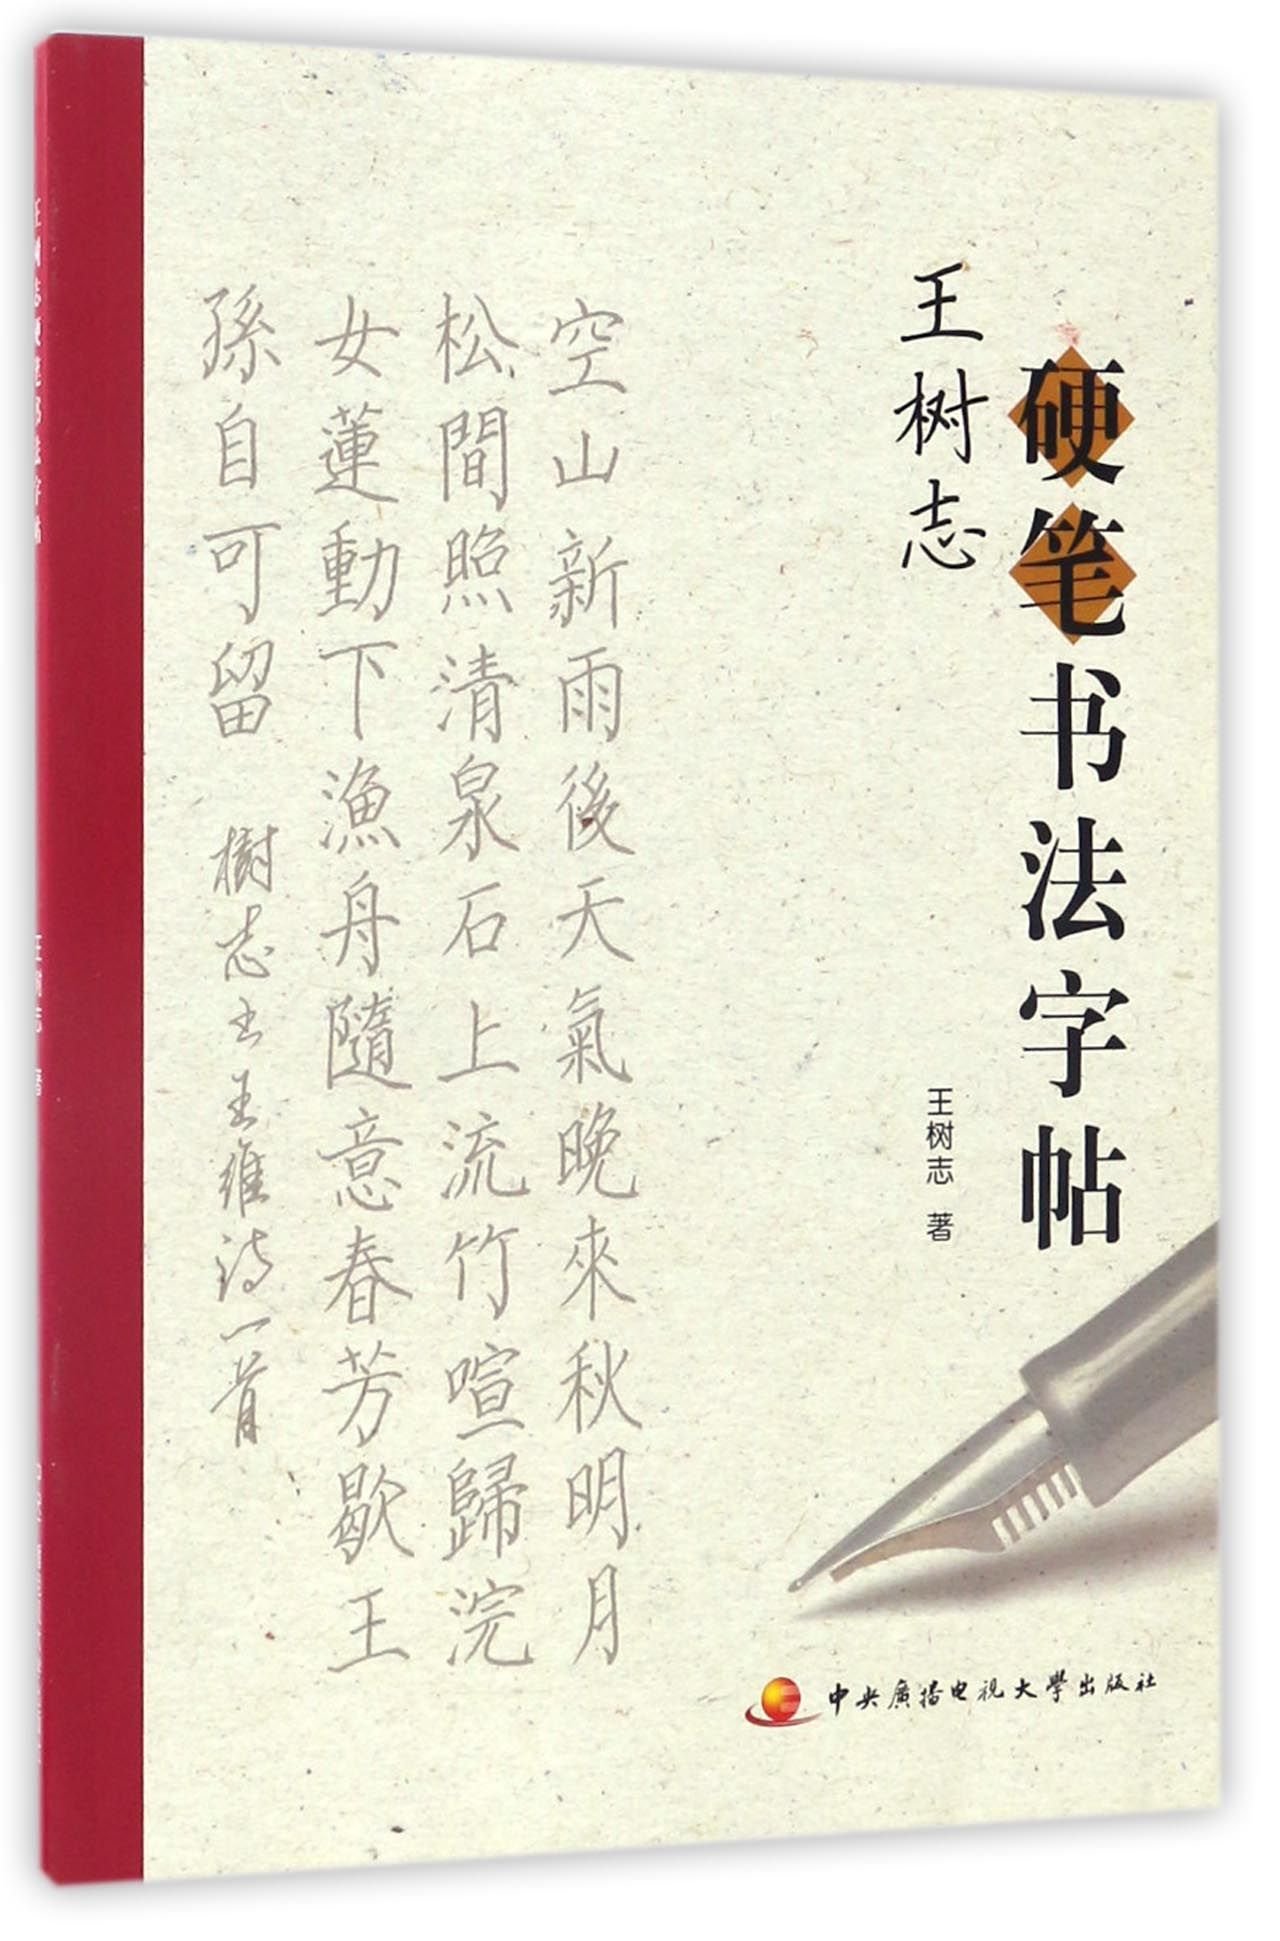 王树志
硬笔书法字帖
王树志 著
空山新雨後天氣晚來秋明月
松間照清泉石上流竹喧歸浣
女蓮動下漁舟隨意春芳歇王
孫自可留 樹志书王維诗一首
中央廣播电视大學出版社
王树志硬笔书法字帖
王树志 著